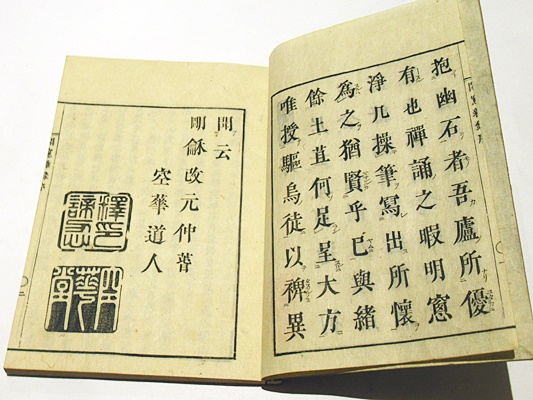 抱幽石者吾廬所優
有也禪誦之暇明窻
淨几操筆寫出所懷
爲之猶賢乎已與緒
餘土苴何足呈大方
唯授驅烏徒以裨異
聞云
明龢改元仲萅
空華道人